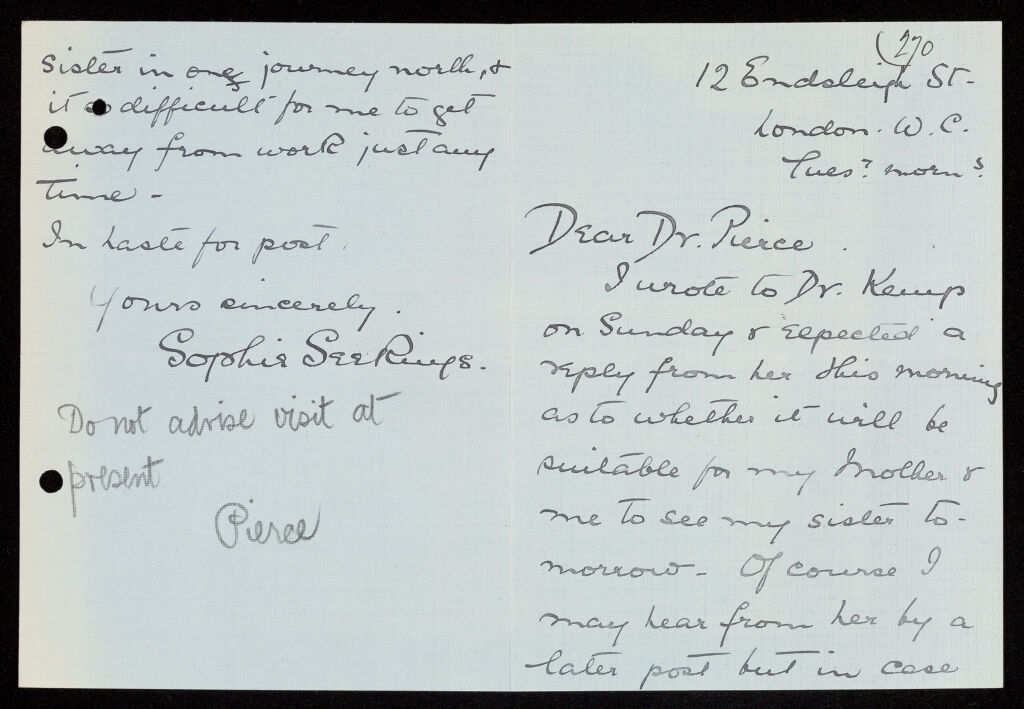 (270
12 Endsleigh St-
London. W. C.
Tues? morn s.
Dear Dr. Pierce.
I wrote to Dr. Kemp
on Sunday & expected a
reply from her this morning
as to whether it will be
suitable for my Mother &
me to see my sister to-
morrow- Of course I
may hear from her by a
later post but in case
sister in one journey north, &
it is difficult for me to get
away from work just any
time -
In haste for post.
Yours sincerely.
Sophie Seekings.
Do not advise visit at
present
Pierce